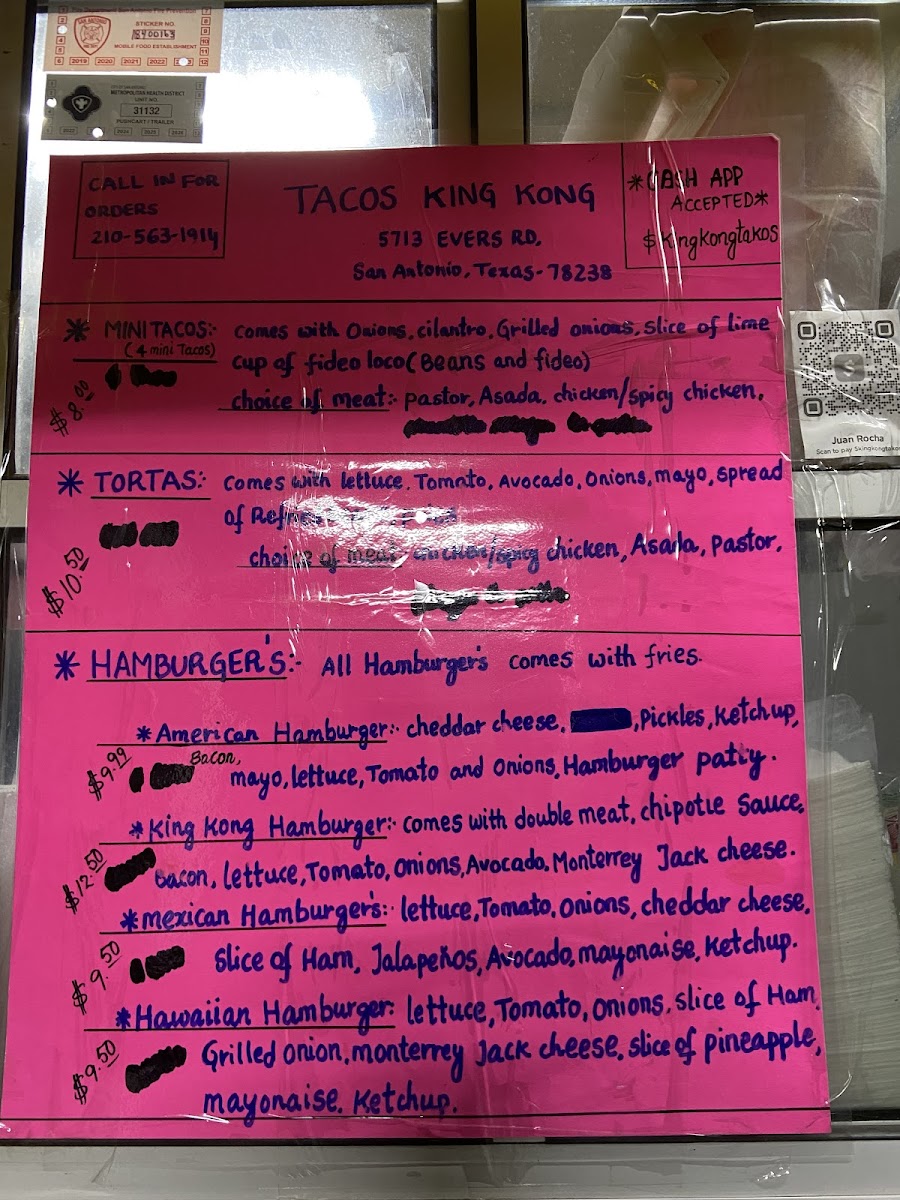 Fire Department San Antonio Fire Prevention
STICKER NO.
MOBILE FOOD ESTABLISHMENT
2019 2020 2021 2022
METROPOLITAN HEALTH DISTRICT
UNIT NO.
31132
PUSHCART / TRAILER
CALL IN FOR
ORDERS
210-563-1914
TACOS KING KONG
5713 EVERS RD,
San Antonio, Texas-78238
*CASH APP
ACCEPTED*
$kingkongtakos
* MINI TACOS:- comes with Onions, cilantro, Grilled onions, slice of lime
(4 mini Tacos) cup of fideo loco (Beans and fideo)
$8.00 choice of meat:- pastor, Asada, chicken/spicy chicken.
Juan Rocha
Scan to pay $kingkongtakos
* TORTAS:- comes with lettuce, Tomato, Avocado, Onions, mayo, spread
of
$10.50 choice of meat chicken/spicy chicken, Asada, pastor.
* HAMBURGER'S:- All Hamburger's comes with fries.
*American Hamburger:- cheddar cheese, ,Pickles, Ketchup,
$9.99 Bacon, mayo, lettuce, Tomato and onions, Hamburger patty.
*King Kong Hamburger:- comes with double meat, chipotle sauce,
$12.50 Bacon, lettuce, Tomato, Onions, Avocado, Monterrey Jack cheese.
*mexican Hamburger's:- lettuce, Tomato, Onions, cheddar cheese,
$9.50 slice of Ham, Jalapeños, Avocado, mayonaise, Ketchup.
*Hawaiian Hamburger: lettuce, Tomato, Onions, slice of Ham,
$9.50 Grilled onion, monterrey Jack cheese, slice of pineapple,
mayonaise, Ketchup.